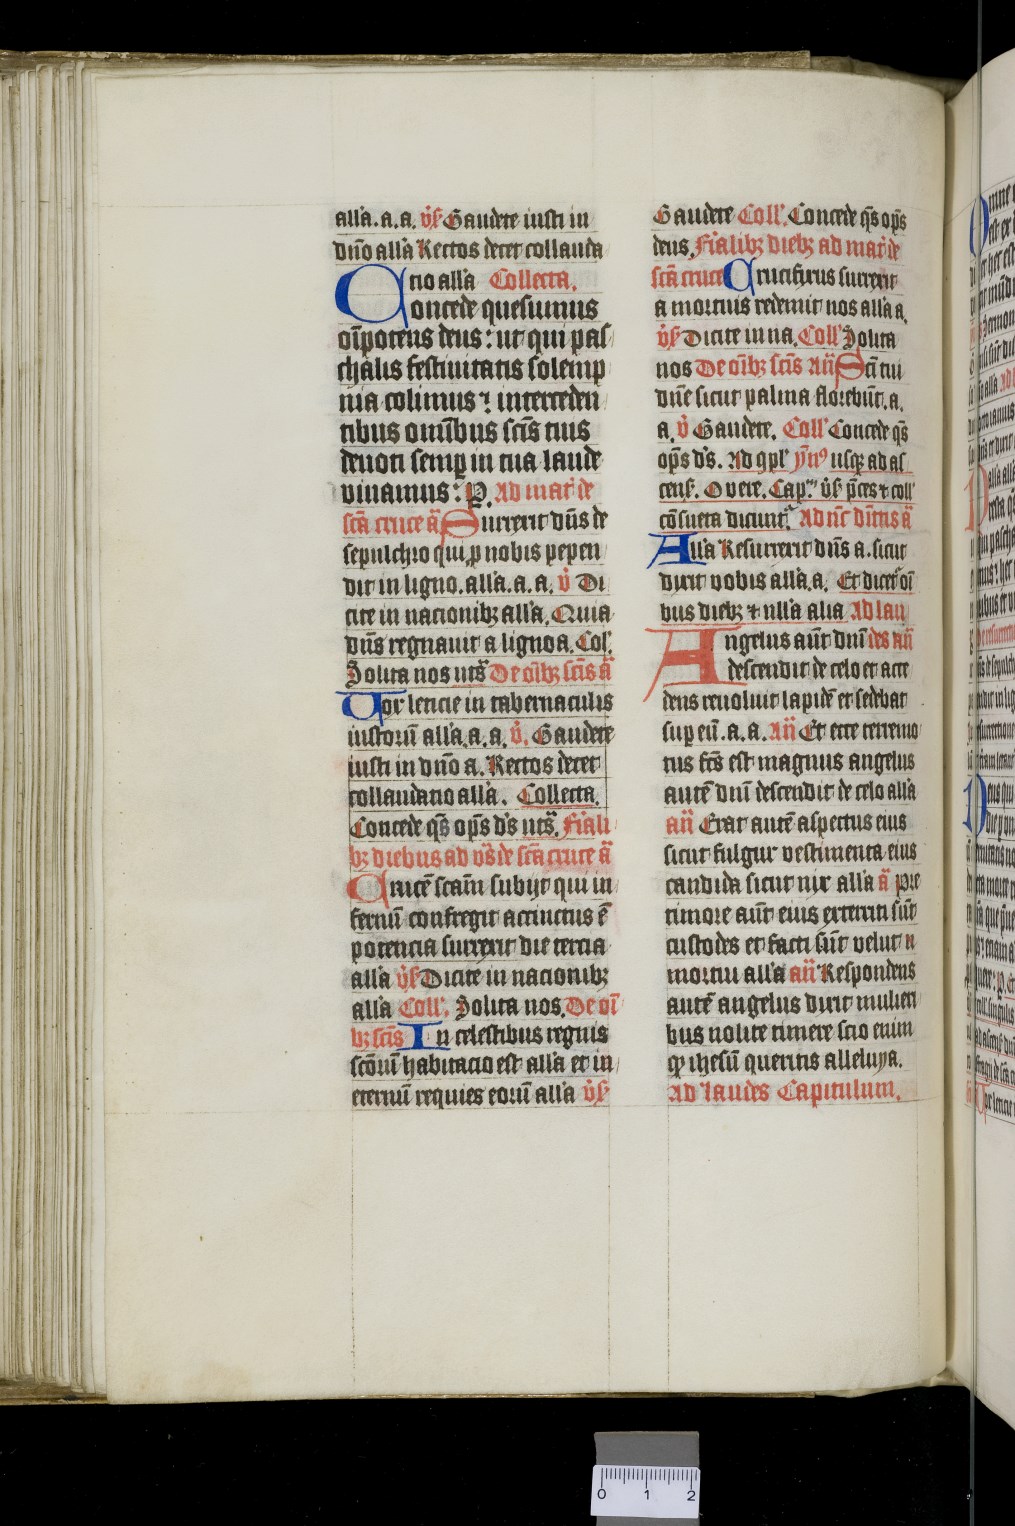 alla. a. a. v̇s Gaudete iusti in
dn̄o alla Rectos decet collauda
tio alla Collecta.
Concede quesumus
oīpotens deus: ut qui pas
chalis festiuitatis solemp
nia colimus ⁊ interceden
tibus omībus scīs tuis
deuoti semꝑ in tua laude
viuamus: P. Ad mat̄ de
scā cruce ā Surrexit dn̄s de
sepulchro qui ꝓ nobis pepen
dit in ligno. alla. a. a. v̇ Di
cite in nacionibꝫ alla. Quia
dn̄s regnauit a ligno a. Col̄.
Solita nos uts̄ De oībꝫ scīs ā
Uox leticie in tabernaculis
iustorū alla. a. a. v̇. Gaudete
iusti in dn̄o a. Rectos decet
collaudatio alla. Collecta.
Concede qs̄ ops̄ ds̄ uts̄. Fīali
bꝫ diebus ad vs̄ de scā cruce ā
Crucē scām subijt qui in
fernū confregit accinctus ē
potencia surrexit die tercia
alla v̇s Dicite in nacionibꝫ
alla Coll̄. Solita nos. De oī
bꝫ scīs In celestibus regnis
scōrū habitacio est alla et in
eternū requies eorū alla v̇s
Gaudete Coll̄. Concede qs̄ ops̄
deus. Fīalibꝫ diebꝫ ad mat̄ de
scā cruce Crucifixus surrexit
a mortuis redemit nos alla a.
v̇s Dicite in na. Coll̄ Solita
nos De oībꝫ scīs Añ Scī tui
dn̄e sicut palma florebūt. a.
a. v̇ Gaudete. Coll̄ Concede qs̄
ops̄ ds̄. Ad ꝯpl̄ ymꝰ usqꝫ ad as
cens̄. Overe. Cap. v̇s p̄ces ⁊ coll̄
cōsueta dicunt̄. Ad nc̄ dīttis ā
Alla Resurrexit dn̄s a. sicut
dixit vobis alla. a. Et dicet̄ oī
bus diebꝫ ⁊ nlla alia Ad lau
Angelus aūt dn̄i des añ
descendit de celo et acce
dens reuoluit lapidē et sedebat
suꝑ eū. a. a. Añ Et ecce terremo
tus fc̄s est magnus angelus
autē dn̄i descendit de celo alla
añ Erat autē aspectus eius
sicut fulgur vestimenta eius
candida sicut nix alla ā Pre
timore aūt eius exterriti sūt
custodes et facti sūt velut
mortui alla añ Respondens
autē angelus dixit mulieri
bus nolite timere scio enim
qꝫ ihesū queritis alleluya.
Ad laudes Capitulum.